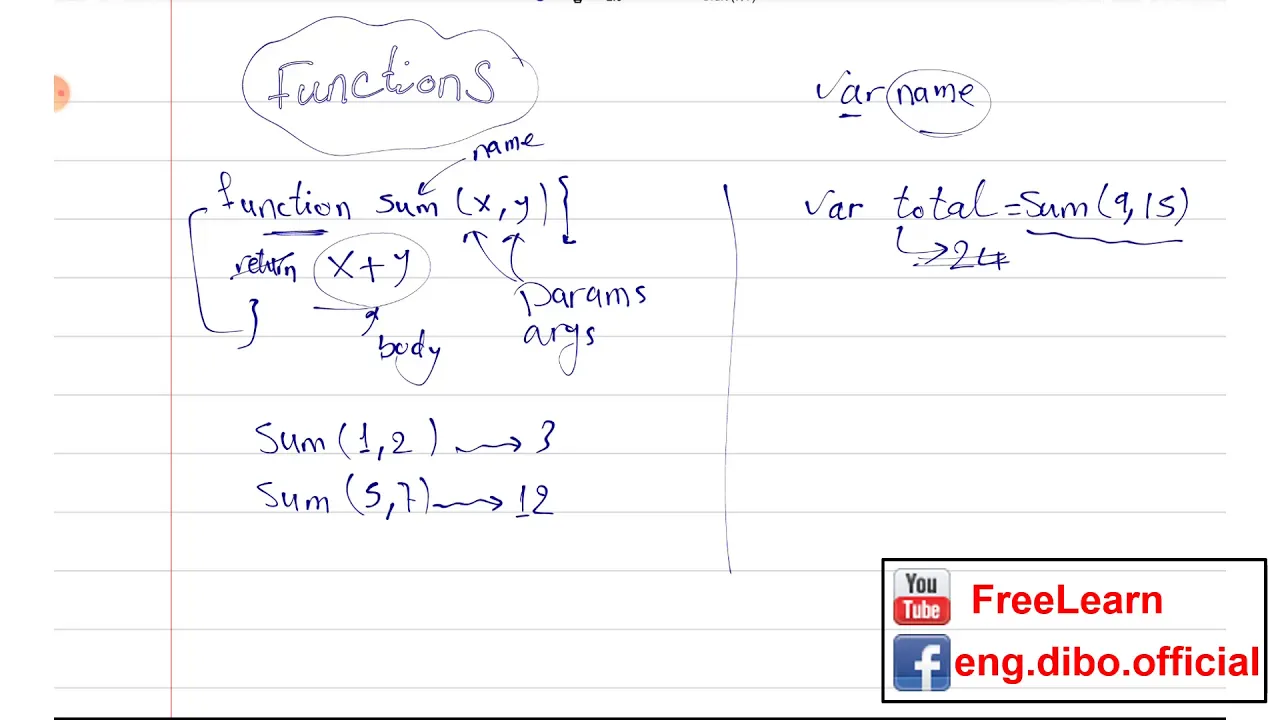 Functions
name
function sum (x, y) {
return x + y
}
params
args
body
Sum (1, 2) → 3
Sum (5, 7) → 12
var name
var total = Sum (9, 15)
→ 24
You
Tube
FreeLearn
f
eng.dibo.official